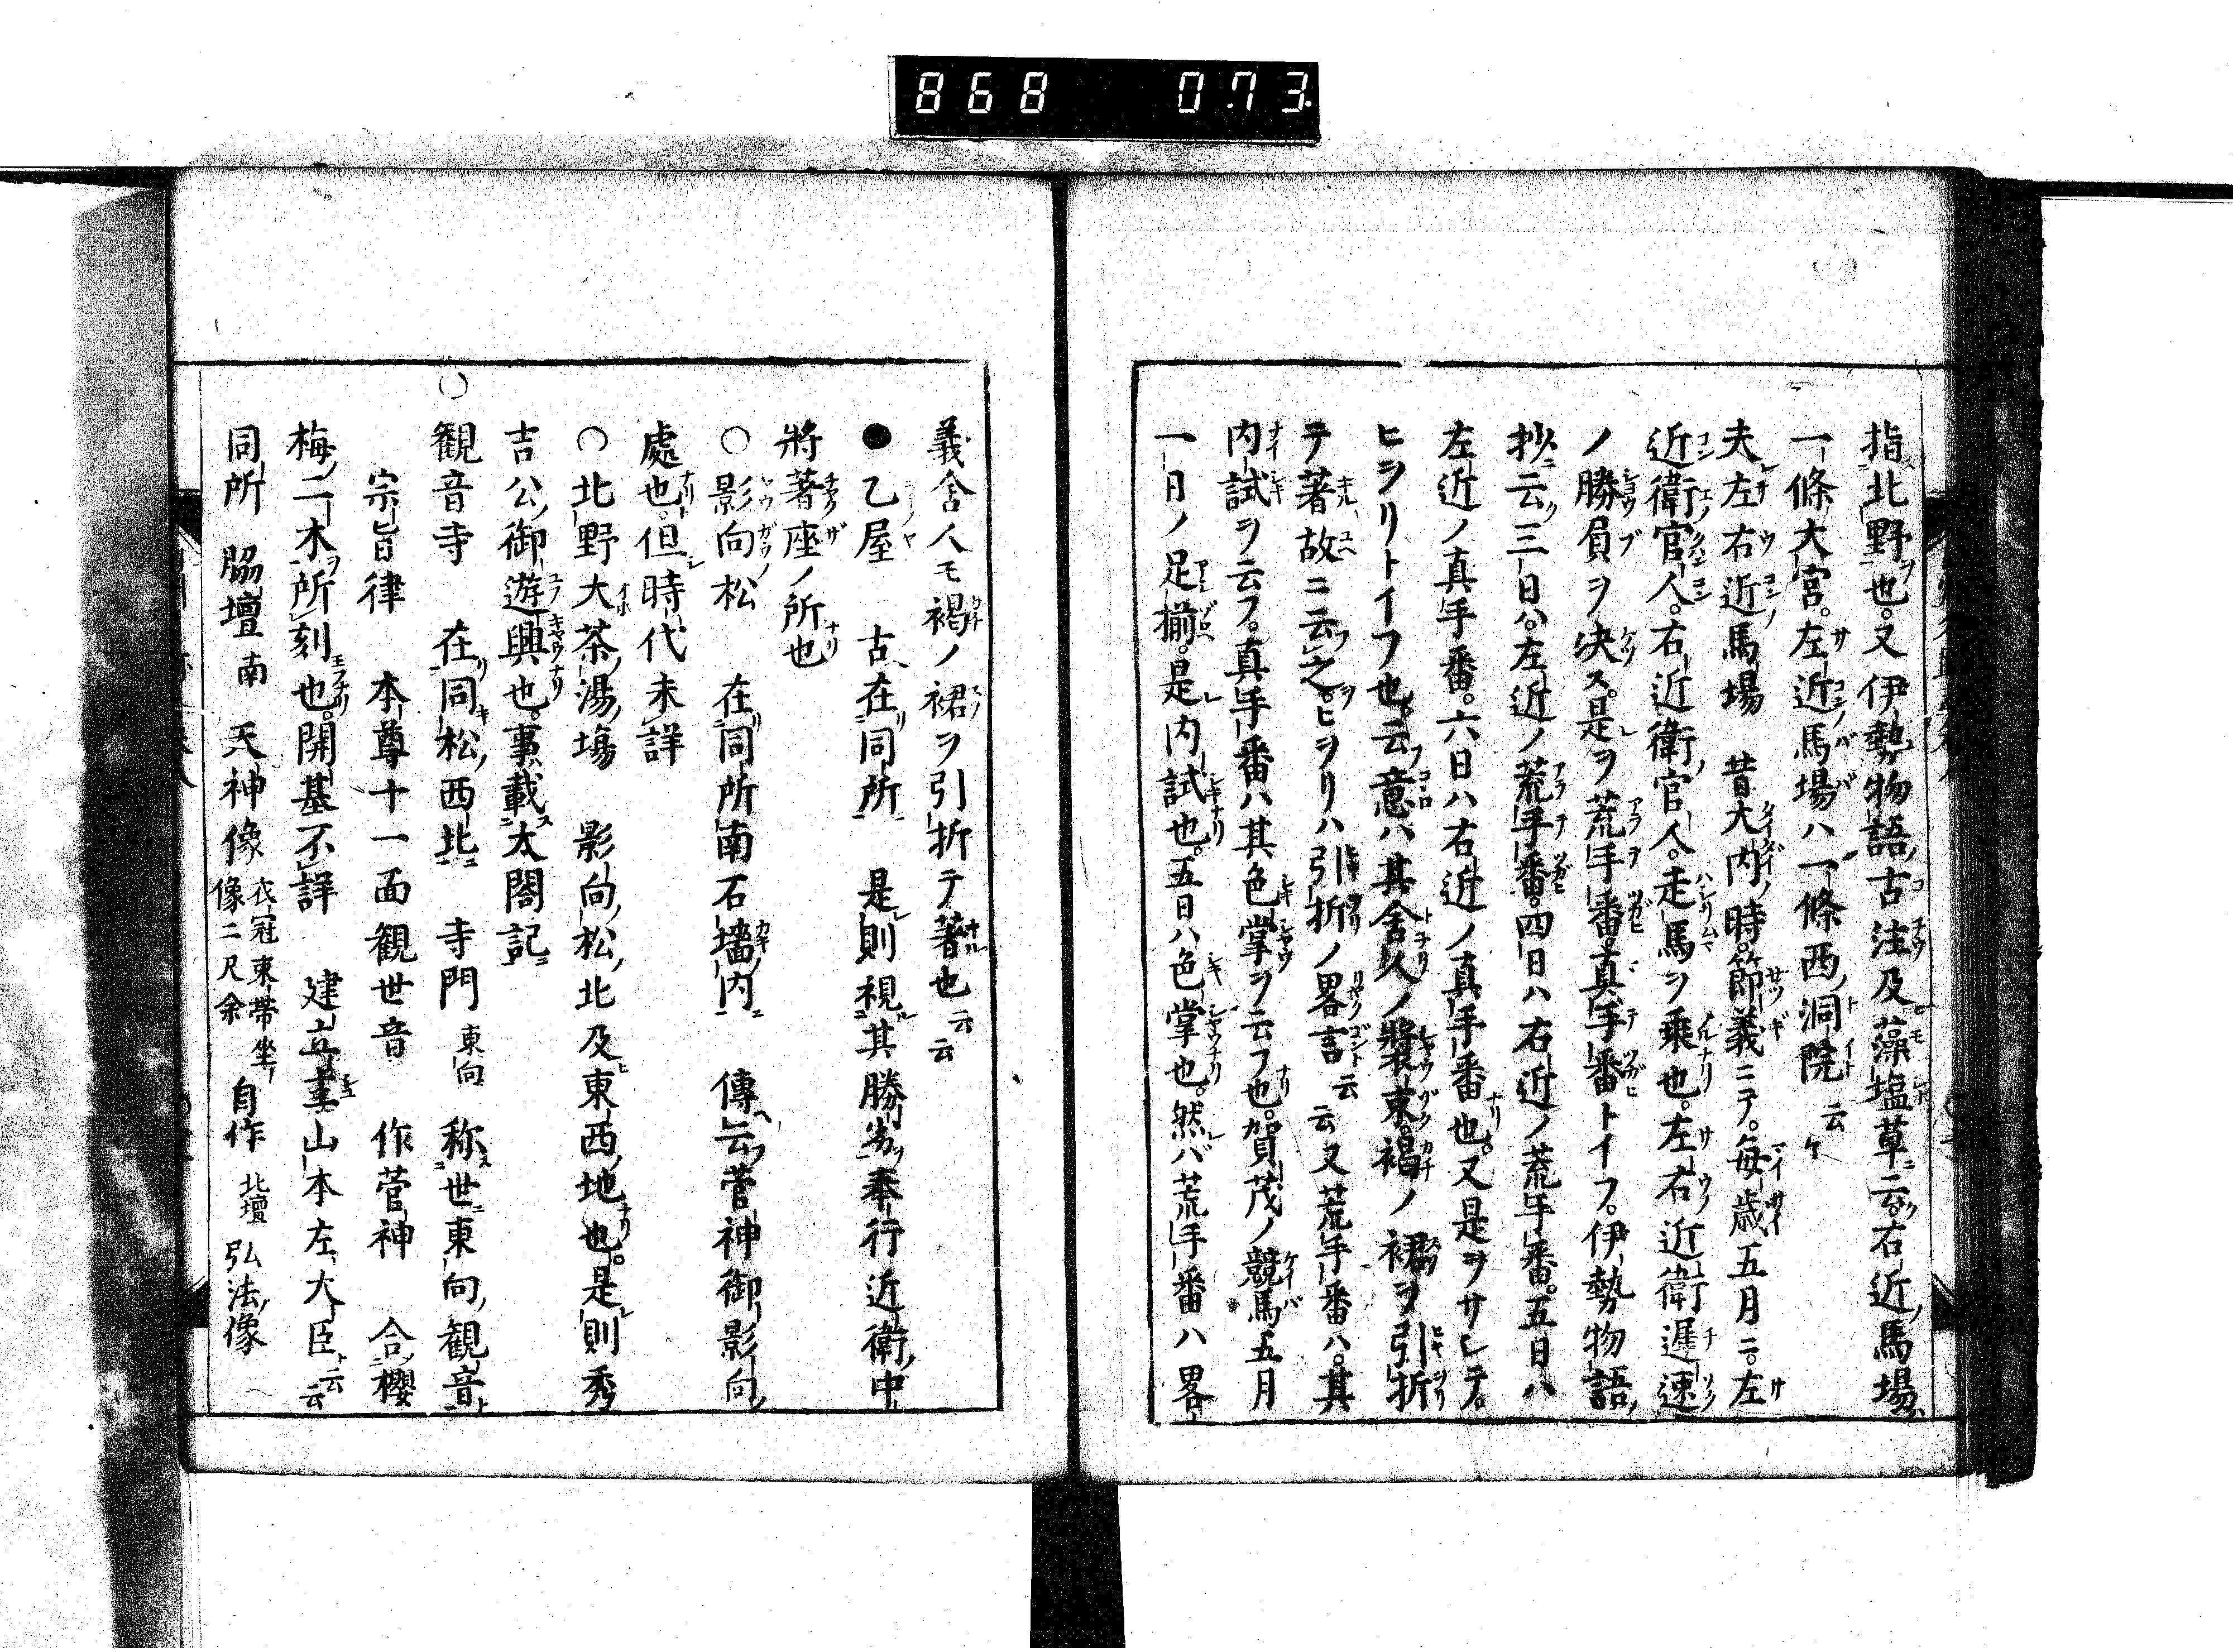 868 073
指北野也。又伊勢物語古注及藻塩草ニ云。右近馬場ハ
一條大宮。左近馬場ハ一條西洞院云々
夫左右近馬場 昔大内ノ時。節義ニテ。毎歳五月ニ。左
近衛官人。右近衛官人。走馬ヲ乗也。左右近衛遅速
ノ勝負ヲ决ス。是ヲ荒手番。真手番トイフ。伊勢物語
抄ニ云三日ハ左近ノ荒手番。四日ハ右近ノ荒手番。五日ハ
左近ノ真手番。六日ハ右近ノ真手番也。又是ヲサヒテ。
ヒヲリトイフ也。云意ハ其舎人ノ装束。褐ノ裙ヲ引折
テ著故ニ云之。ヒヲリハ引折ノ畧言云云又荒手番ハ。其
内試ヲ云フ。真手番ハ其色掌ヲ云フ也。賀茂ノ競馬五月
一日ノ足揃。是内試也。五日ハ色掌也。然バ荒手番ハ畧
義舎人モ褐ノ裙ヲ引折テ著也云云
●乙屋 古在同所 是則視其勝劣奉行近衛中
將著座ノ所也
○影向松 在同所南石墻内 傳云菅神御影向
處也但時代未詳
○北野大茶湯塲 影向松北及東西地也。是則秀
吉公御遊興也。事載太閤記
○観音寺 在同松西北 寺門東向 称世東向観音
宗旨律 本尊十一面観世音 作菅神 合櫻
梅二木所刻也。開基不詳 建立本山本左大臣云云
同所 脇壇南 天神像 衣冠束帯坐像二尺余 自作 北壇 弘法像